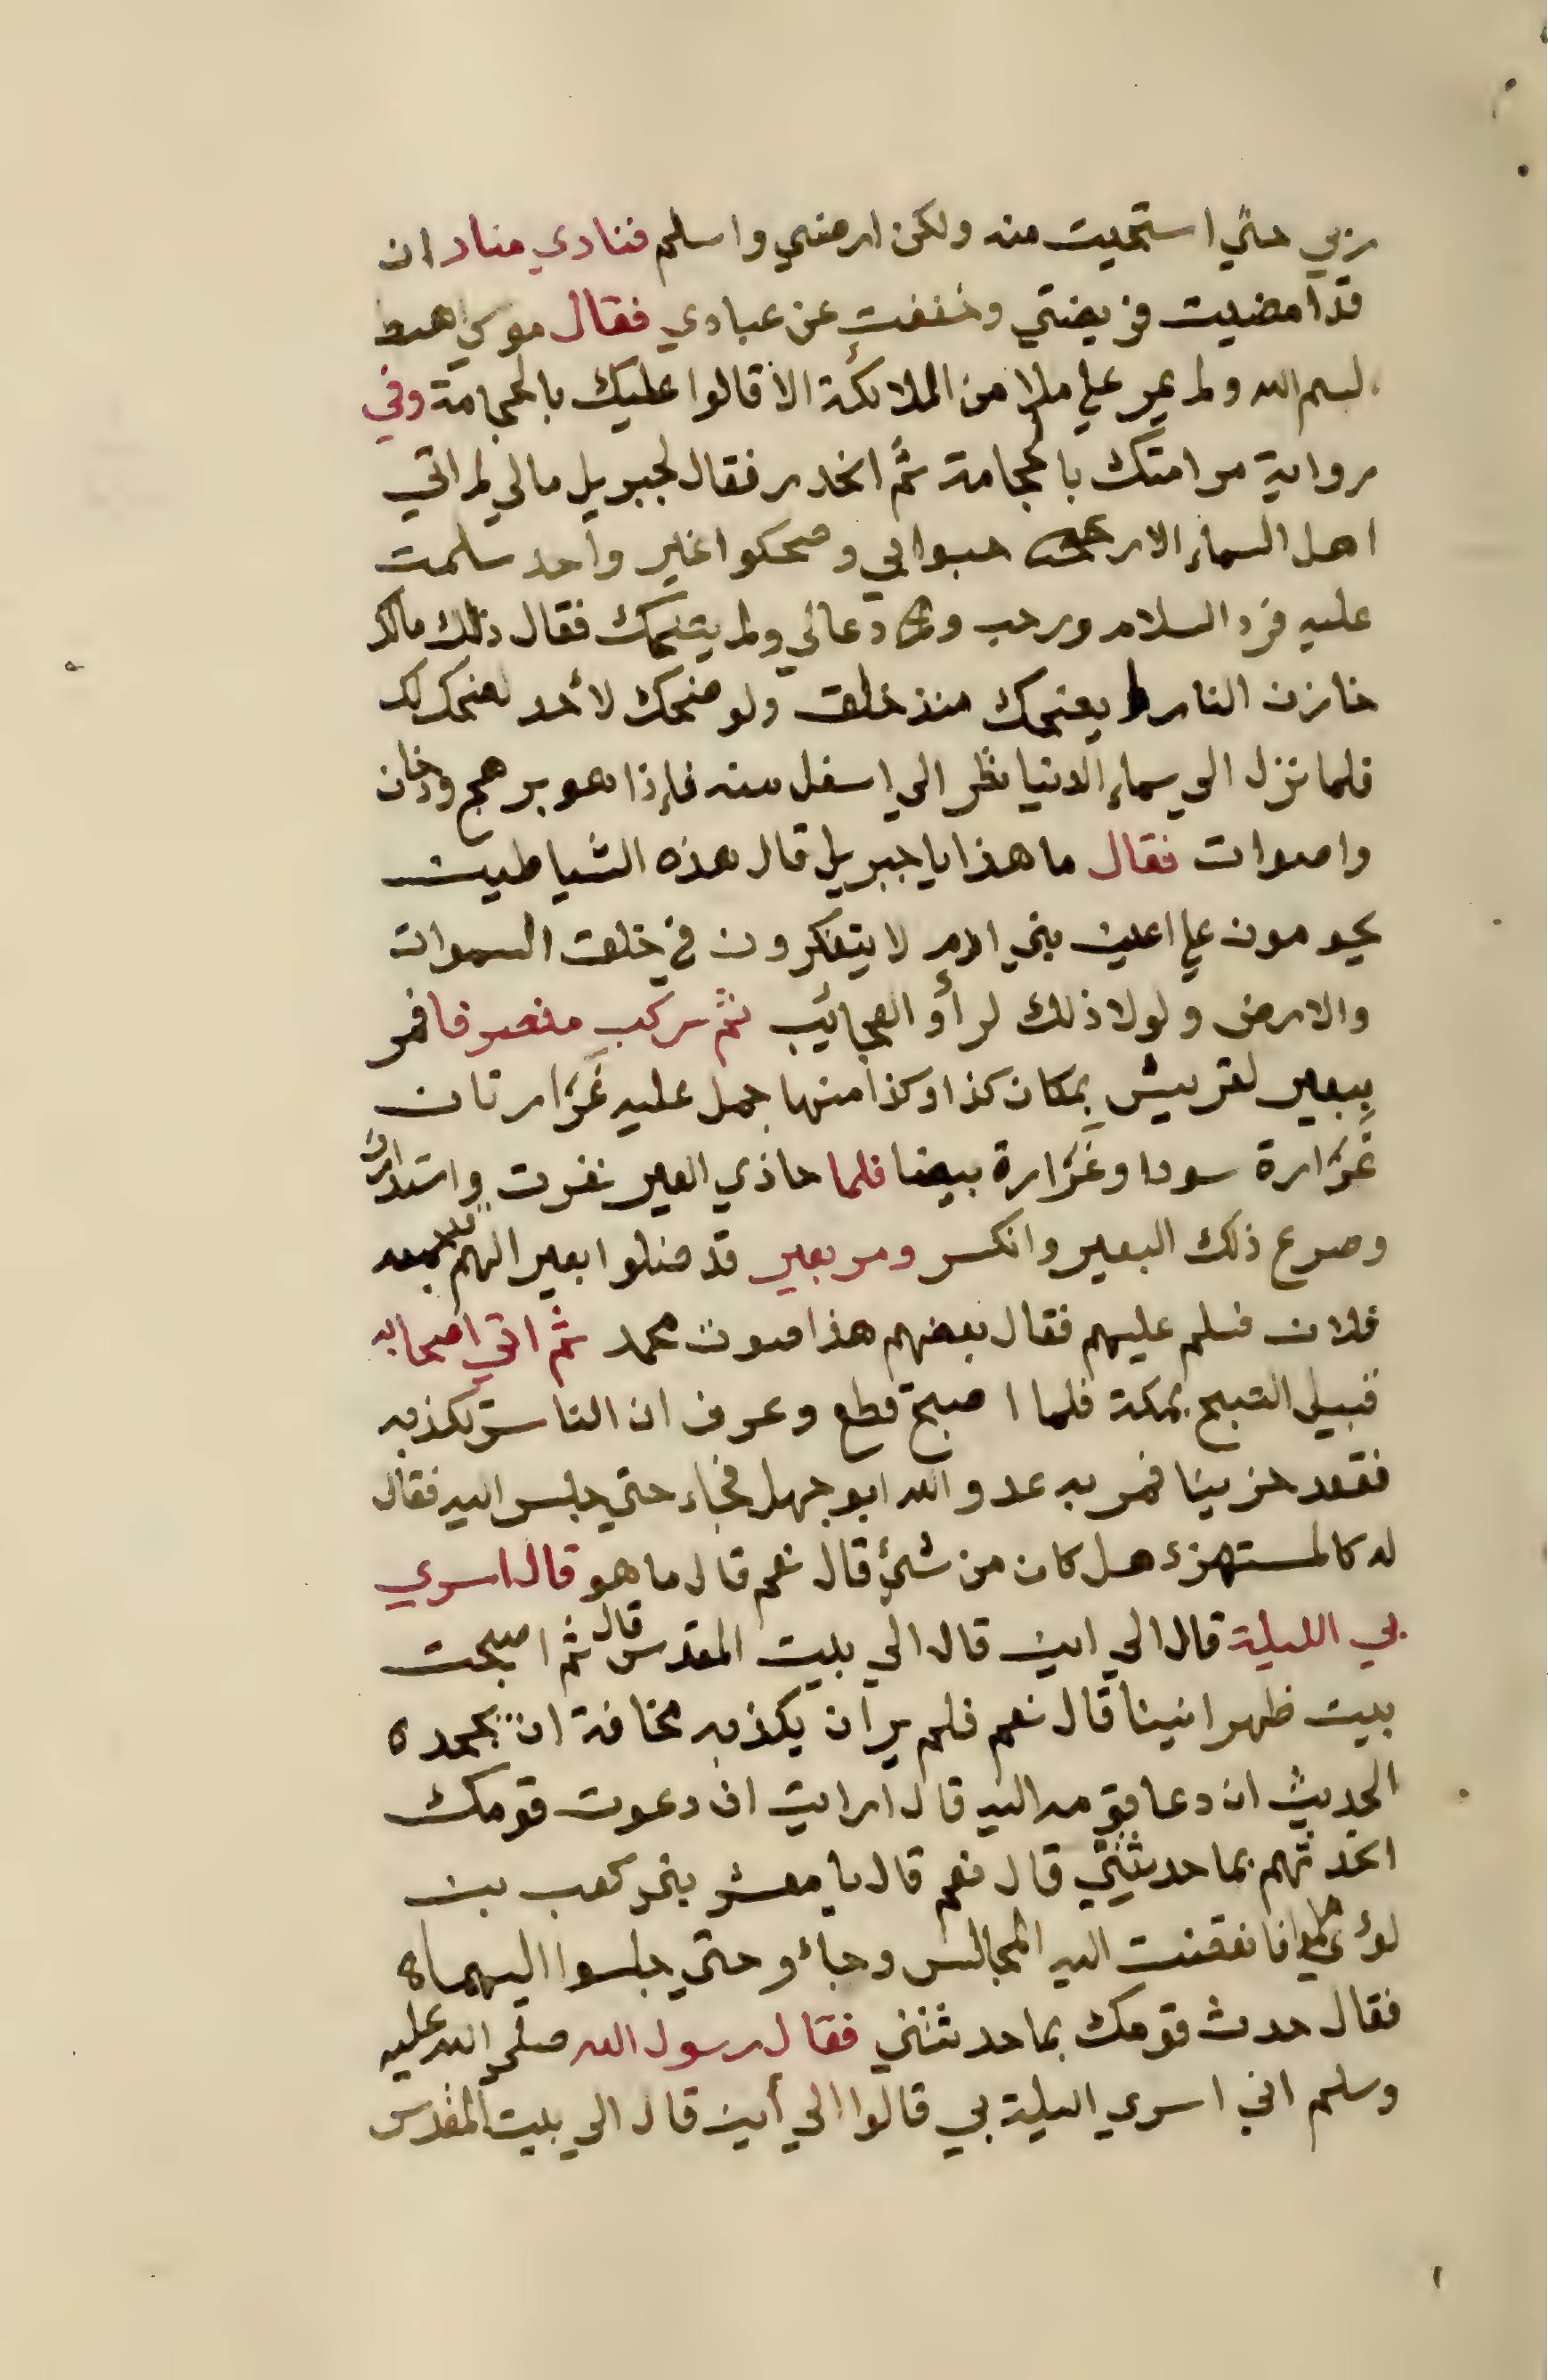 ربي حتي استحيت منه ولكن ارضي واسلم فنادي مناد ان
قد امضيت فريضتي وخففت عن عبادي فقال موسي اهبط
بسم الله ولم يمر علي ملا من الملائكة الا قالوا عليك بالحجامة وفي
رواية مر امتك بالحجامة ثم انحدر فقال لجبريل مالي لم اتي
اهل السماء الا رحبوا بي وضحكوا غير واحد سلمت
عليه فرد السلام ورحب ودعالي ولم يضحك فقال ذلك مالك
خازن النار لم يضحك منذ خلق ولو ضحك لأحد لضحك لك
فلما نزل الي سماء الدنيا نظر الي اسفل منه فاذا هو برهج ودخان
واصوات فقال ما هذا يا جبريل قال هذه الشياطين
يحومون علي اعين بني ادم لا يتفكرون في خلق السموات
والارض ولولا ذلك لرأو العجائب ثم ركب منصرفا فمر
ببعير لقريش بمكان كذا وكذا منها جمل عليه غرارتان
غرارة سودا وغرارة بيضا فلما حاذي العير نفرت واستدارت
وصرع ذلك البعير وانكسر ومر بعير قد ضلوا بعيرا لهم قد جمعه
فلان فسلم عليهم فقال بعضهم هذا صوت محمد ثم اتي اصحابه
قبيل الصبح بمكة فلما اصبح قطع وعرف ان الناس تكذبه
فقعد حزينا فمر به عدو الله ابو جهل فجاء حتي جلس اليه فقال
له كالمستهزء هل كان من شئ قال نعم قال ما هو قال اسري
بي الليلة قال الي اين قال الي بيت المقدس قال ثم اصبحت
بين ظهرانينا قال نعم فلم ير ان يكذبه مخافة ان يجحده
الحديث ان دعا قومه اليه قال ارايت ان دعوت قومك
اتحدثهم بما حدثتني قال نعم قال يا معشر بني كعب بن
لؤي هلموا فانفضت اليه المجالس وجاؤ حتي جلسوا اليهما
فقال حدث قومك بما حدثتني فقال رسول الله صلي الله عليه
وسلم اني اسري الليلة بي قالوا الي أين قال الي بيت المقدس